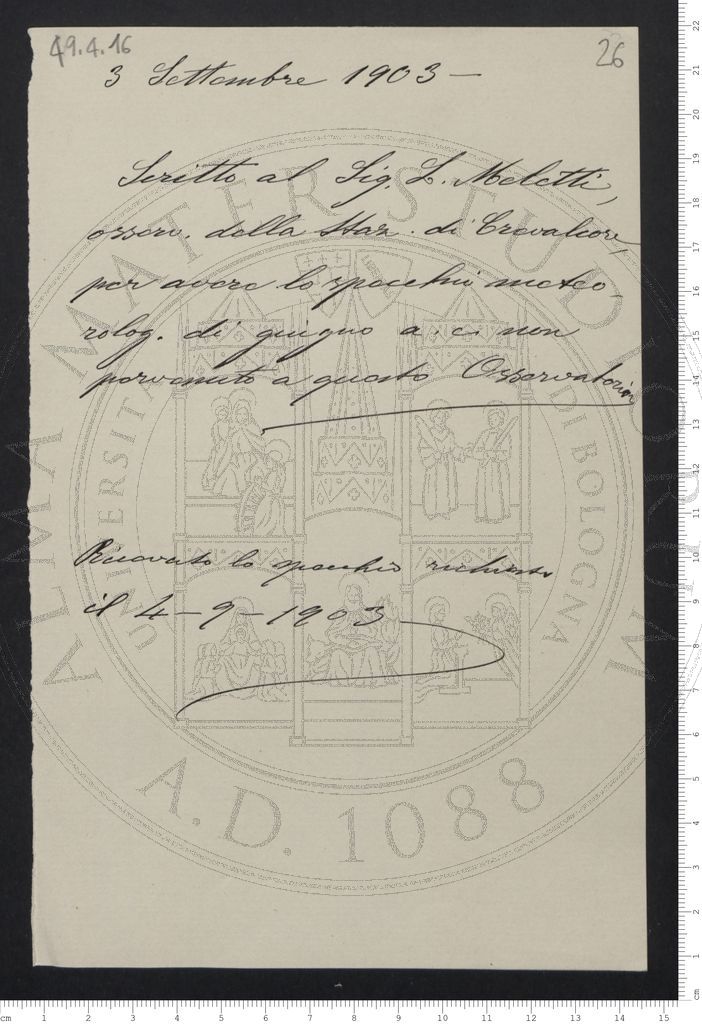 49.4.16
26
3 Settembre 1903 —
Scritto al Sig. L. Meletti,
osserv. della Staz. di Crevalcore,
per avere lo specchio meteo-
rolog. di giugno a. c. non
pervenuto a questo Osservatorio
Ricevuto lo specchio richiesto
il 4-9-1903
ALMA MATER STUDIORUM
UNIVERSITÀ DI BOLOGNA
A.D. 1088